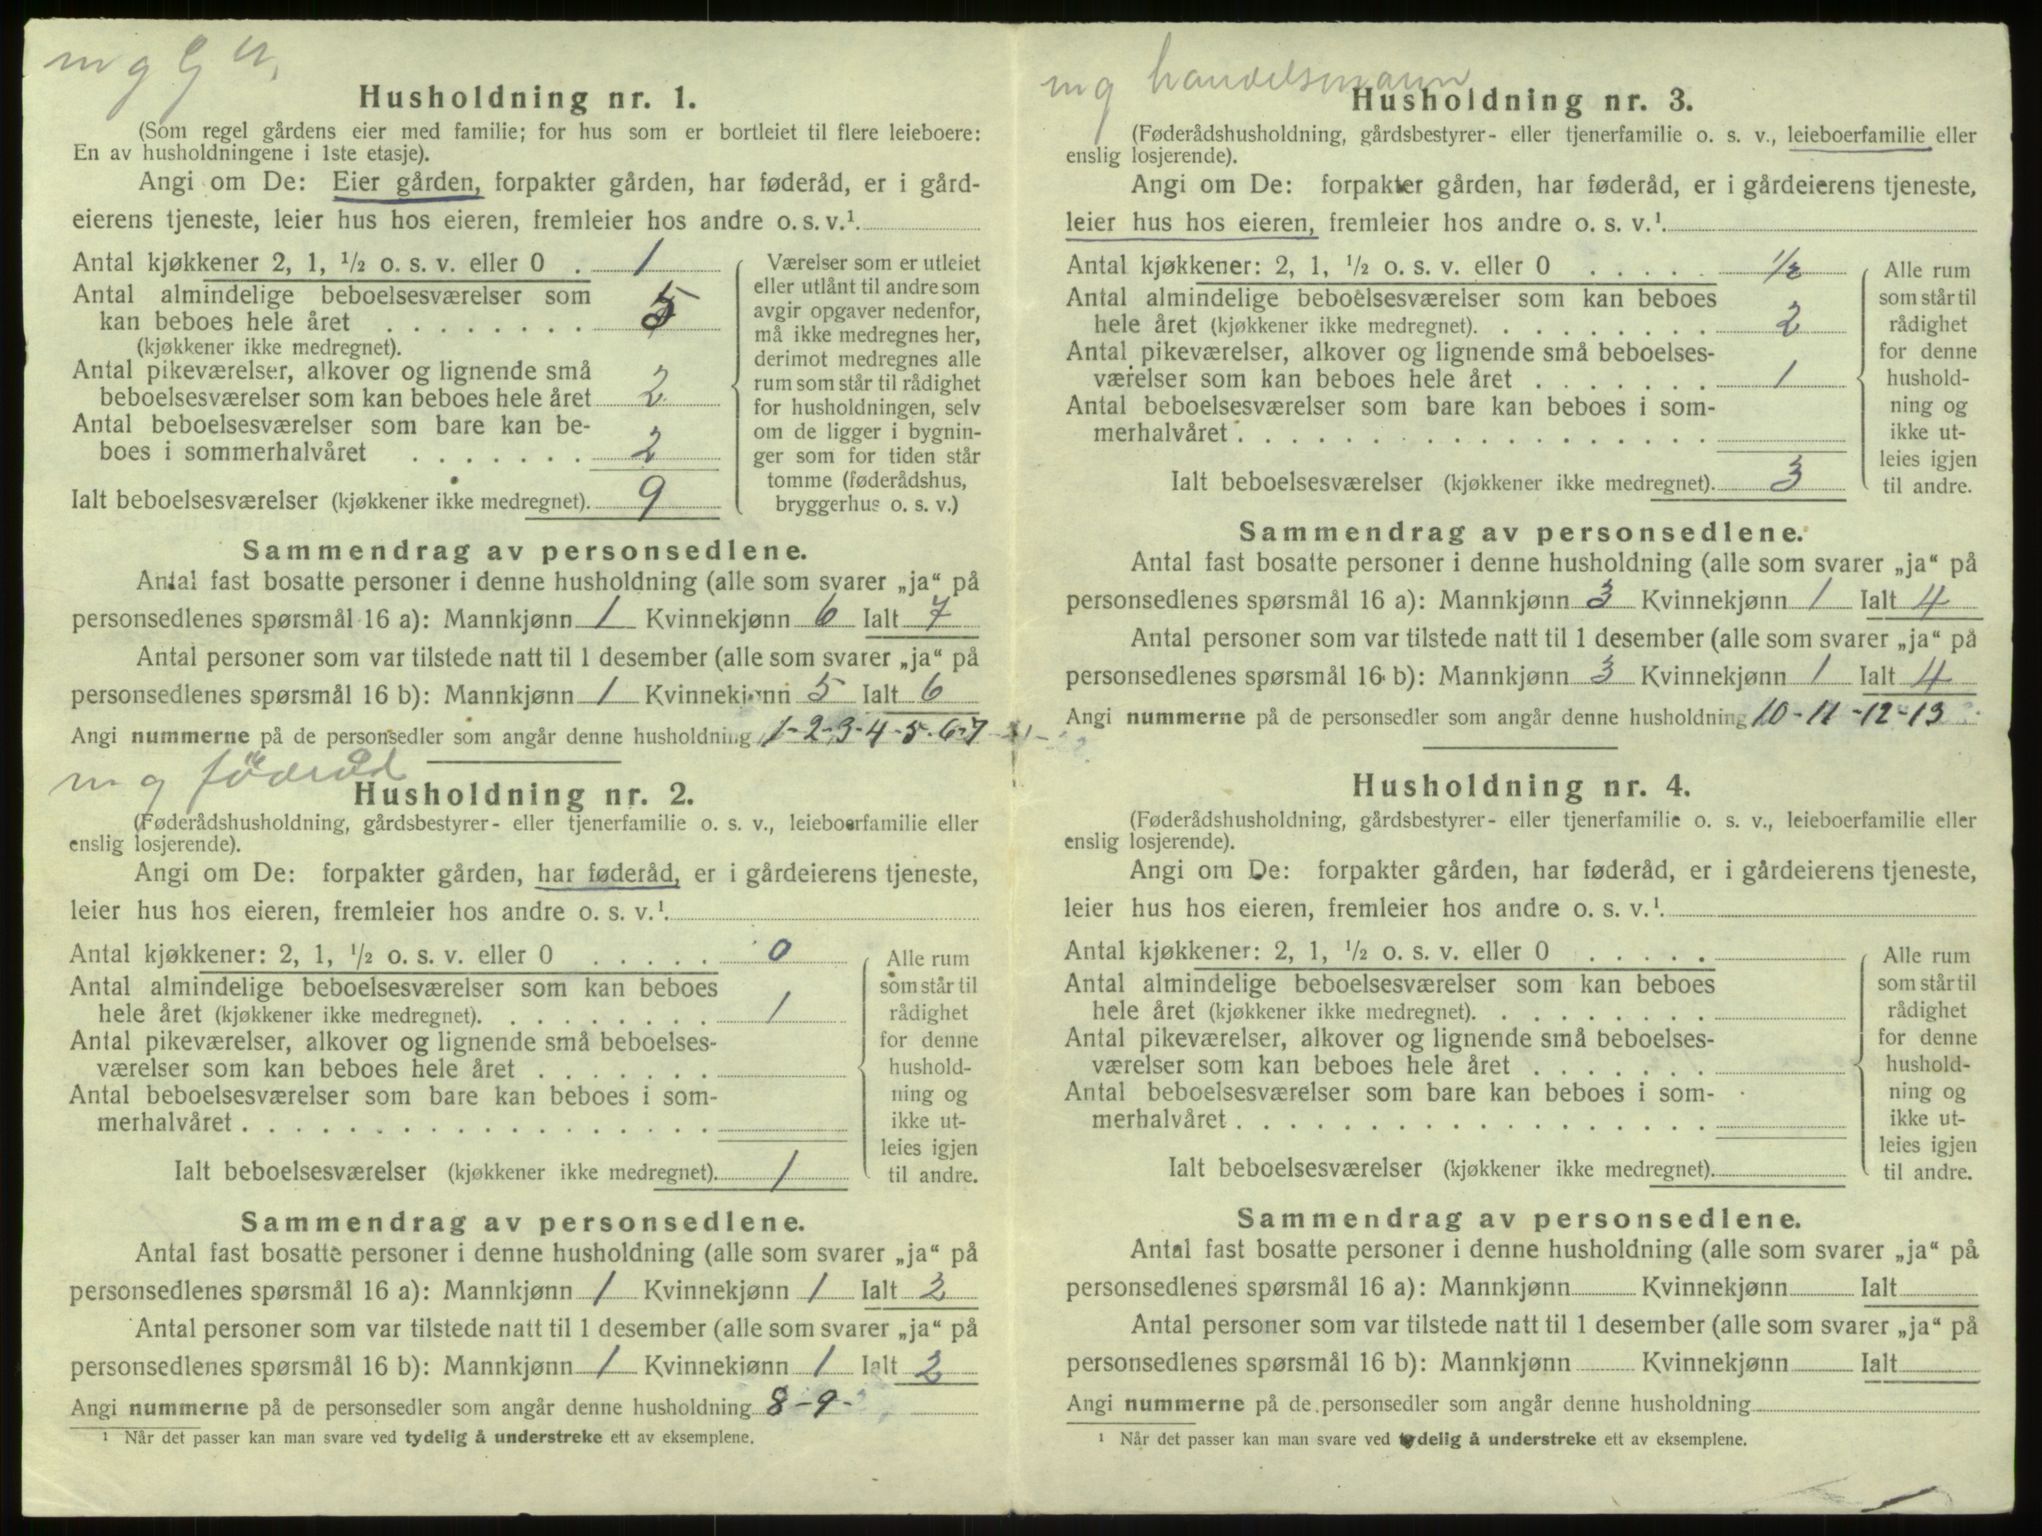 m g G
Husholdning nr. 1.
(Som regel gårdens eier med familie; for hus som er bortleiet til flere leieboere:
En av husholdningene i 1ste etasje).
Angi om De: Eier gården, forpakter gården, har føderåd, er i gård-
eierens tjeneste, leier hus hos eieren, fremleier hos andre o. s. v.¹
Antal kjøkkener 2, 1, ½ o. s. v. eller 0 . 1
Antal almindelige beboelsesværelser som
kan beboes hele året . . . . . . . . 5
(kjøkkener ikke medregnet).
Antal pikeværelser, alkover og lignende små
beboelsesværelser som kan beboes hele året 2
Antal beboelsesværelser som bare kan be-
boes i sommerhalvåret . . . . . . . 2
Ialt beboelsesværelser (kjøkkener ikke medregnet). 9
Værelser som er utleiet
eller utlånt til andre som
avgir opgaver nedenfor,
må ikke medregnes her,
derimot medregnes alle
rum som står til rådighet
for husholdningen, selv
om de ligger i bygnin-
ger som for tiden står
tomme (føderådshus,
bryggerhus o. s. v.)
Sammendrag av personsedlene.
Antal fast bosatte personer i denne husholdning (alle som svarer „ja“ på
personsedlenes spørsmål 16 a): Mannkjønn 1 Kvinnekjønn 6 Ialt 7
Antal personer som var tilstede natt til 1 desember (alle som svarer „ja“ på
personsedlenes spørsmål 16 b): Mannkjønn 1 Kvinnekjønn 5 Ialt 6
Angi nummerne på de personsedler som angår denne husholdning 1-2-3-4-5-6-7
m g föderåd
Husholdning nr. 2.
(Føderådshusholdning, gårdsbestyrer- eller tjenerfamilie o. s. v., leieboerfamilie eller
enslig losjerende).
Angi om De: forpakter gården, har føderåd, er i gårdeierens tjeneste,
leier hus hos eieren, fremleier hos andre o. s. v.¹
Antal kjøkkener: 2, 1, ½ o. s. v. eller 0 . . . . . 0
Antal almindelige beboelsesværelser som kan beboes
hele året (kjøkkener ikke medregnet). . . . . . . . . 1
Antal pikeværelser, alkover og lignende små beboelses-
værelser som kan beboes hele året . . . . . . .
Antal beboelsesværelser som bare kan beboes i som-
merhalvåret . . . . . . . . . . . . . . . . . .
Ialt beboelsesværelser (kjøkkener ikke medregnet). 1
Alle rum
som står til
rådighet
for denne
hushold-
ning og
ikke ut-
leies igjen
til andre.
Sammendrag av personsedlene.
Antal fast bosatte personer i denne husholdning (alle som svarer „ja“ på
personsedlenes spørsmål 16 a): Mannkjønn 1 Kvinnekjønn 1 Ialt 2
Antal personer som var tilstede natt til 1 desember (alle som svarer „ja“ på
personsedlenes spørsmål 16 b): Mannkjønn 1 Kvinnekjønn 1 Ialt 2
Angi nummerne på de personsedler som angår denne husholdning 8-9-
¹ Når det passer kan man svare ved tydelig å understreke ett av eksemplene.
m g handelsmann
Husholdning nr. 3.
(Føderådshusholdning, gårdsbestyrer- eller tjenerfamilie o. s. v., leieboerfamilie eller
enslig losjerende).
Angi om De: forpakter gården, har føderåd, er i gårdeierens tjeneste,
leier hus hos eieren, fremleier hos andre o. s. v.¹
Antal kjøkkener: 2, 1, ½ o. s. v. eller 0 . . . . . ½
Antal almindelige beboelsesværelser som kan beboes
hele året (kjøkkener ikke medregnet). . . . . . . . . 2
Antal pikeværelser, alkover og lignende små beboelses-
værelser som kan beboes hele året . . . . . . . 1
Antal beboelsesværelser som bare kan beboes i som-
merhalvåret . . . . . . . . . . . . . . . . . .
Ialt beboelsesværelser (kjøkkener ikke medregnet). 3
Alle rum
som står til
rådighet
for denne
hushold-
ning og
ikke ut-
leies igjen
til andre.
Sammendrag av personsedlene.
Antal fast bosatte personer i denne husholdning (alle som svarer „ja“ på
personsedlenes spørsmål 16 a): Mannkjønn 3 Kvinnekjønn 1 Ialt 4
Antal personer som var tilstede natt til 1 desember (alle som svarer „ja“ på
personsedlenes spørsmål 16 b): Mannkjønn 3 Kvinnekjønn 1 Ialt 4
Angi nummerne på de personsedler som angår denne husholdning 10-11-12-13
Husholdning nr. 4.
(Føderådshusholdning, gårdsbestyrer- eller tjenerfamilie o. s. v., leieboerfamilie eller
enslig losjerende).
Angi om De: forpakter gården, har føderåd, er i gårdeierens tjeneste,
leier hus hos eieren, fremleier hos andre o. s. v.¹
Antal kjøkkener: 2, 1, ½ o. s. v. eller 0 . . . . .
Antal almindelige beboelsesværelser som kan beboes
hele året (kjøkkener ikke medregnet). . . . . . . . .
Antal pikeværelser, alkover og lignende små beboelses-
værelser som kan beboes hele året . . . . . . .
Antal beboelsesværelser som bare kan beboes i som-
merhalvåret . . . . . . . . . . . . . . . . . .
Ialt beboelsesværelser (kjøkkener ikke medregnet).
Alle rum
som står til
rådighet
for denne
hushold-
ning og
ikke ut-
leies igjen
til andre.
Sammendrag av personsedlene.
Antal fast bosatte personer i denne husholdning (alle som svarer „ja“ på
personsedlenes spørsmål 16 a): Mannkjønn Kvinnekjønn Ialt
Antal personer som var tilstede natt til 1 desember (alle som svarer „ja“ på
personsedlenes spørsmål 16 b): Mannkjønn Kvinnekjønn Ialt
Angi nummerne på de personsedler som angår denne husholdning
¹ Når det passer kan man svare ved tydelig å understreke ett av eksemplene.